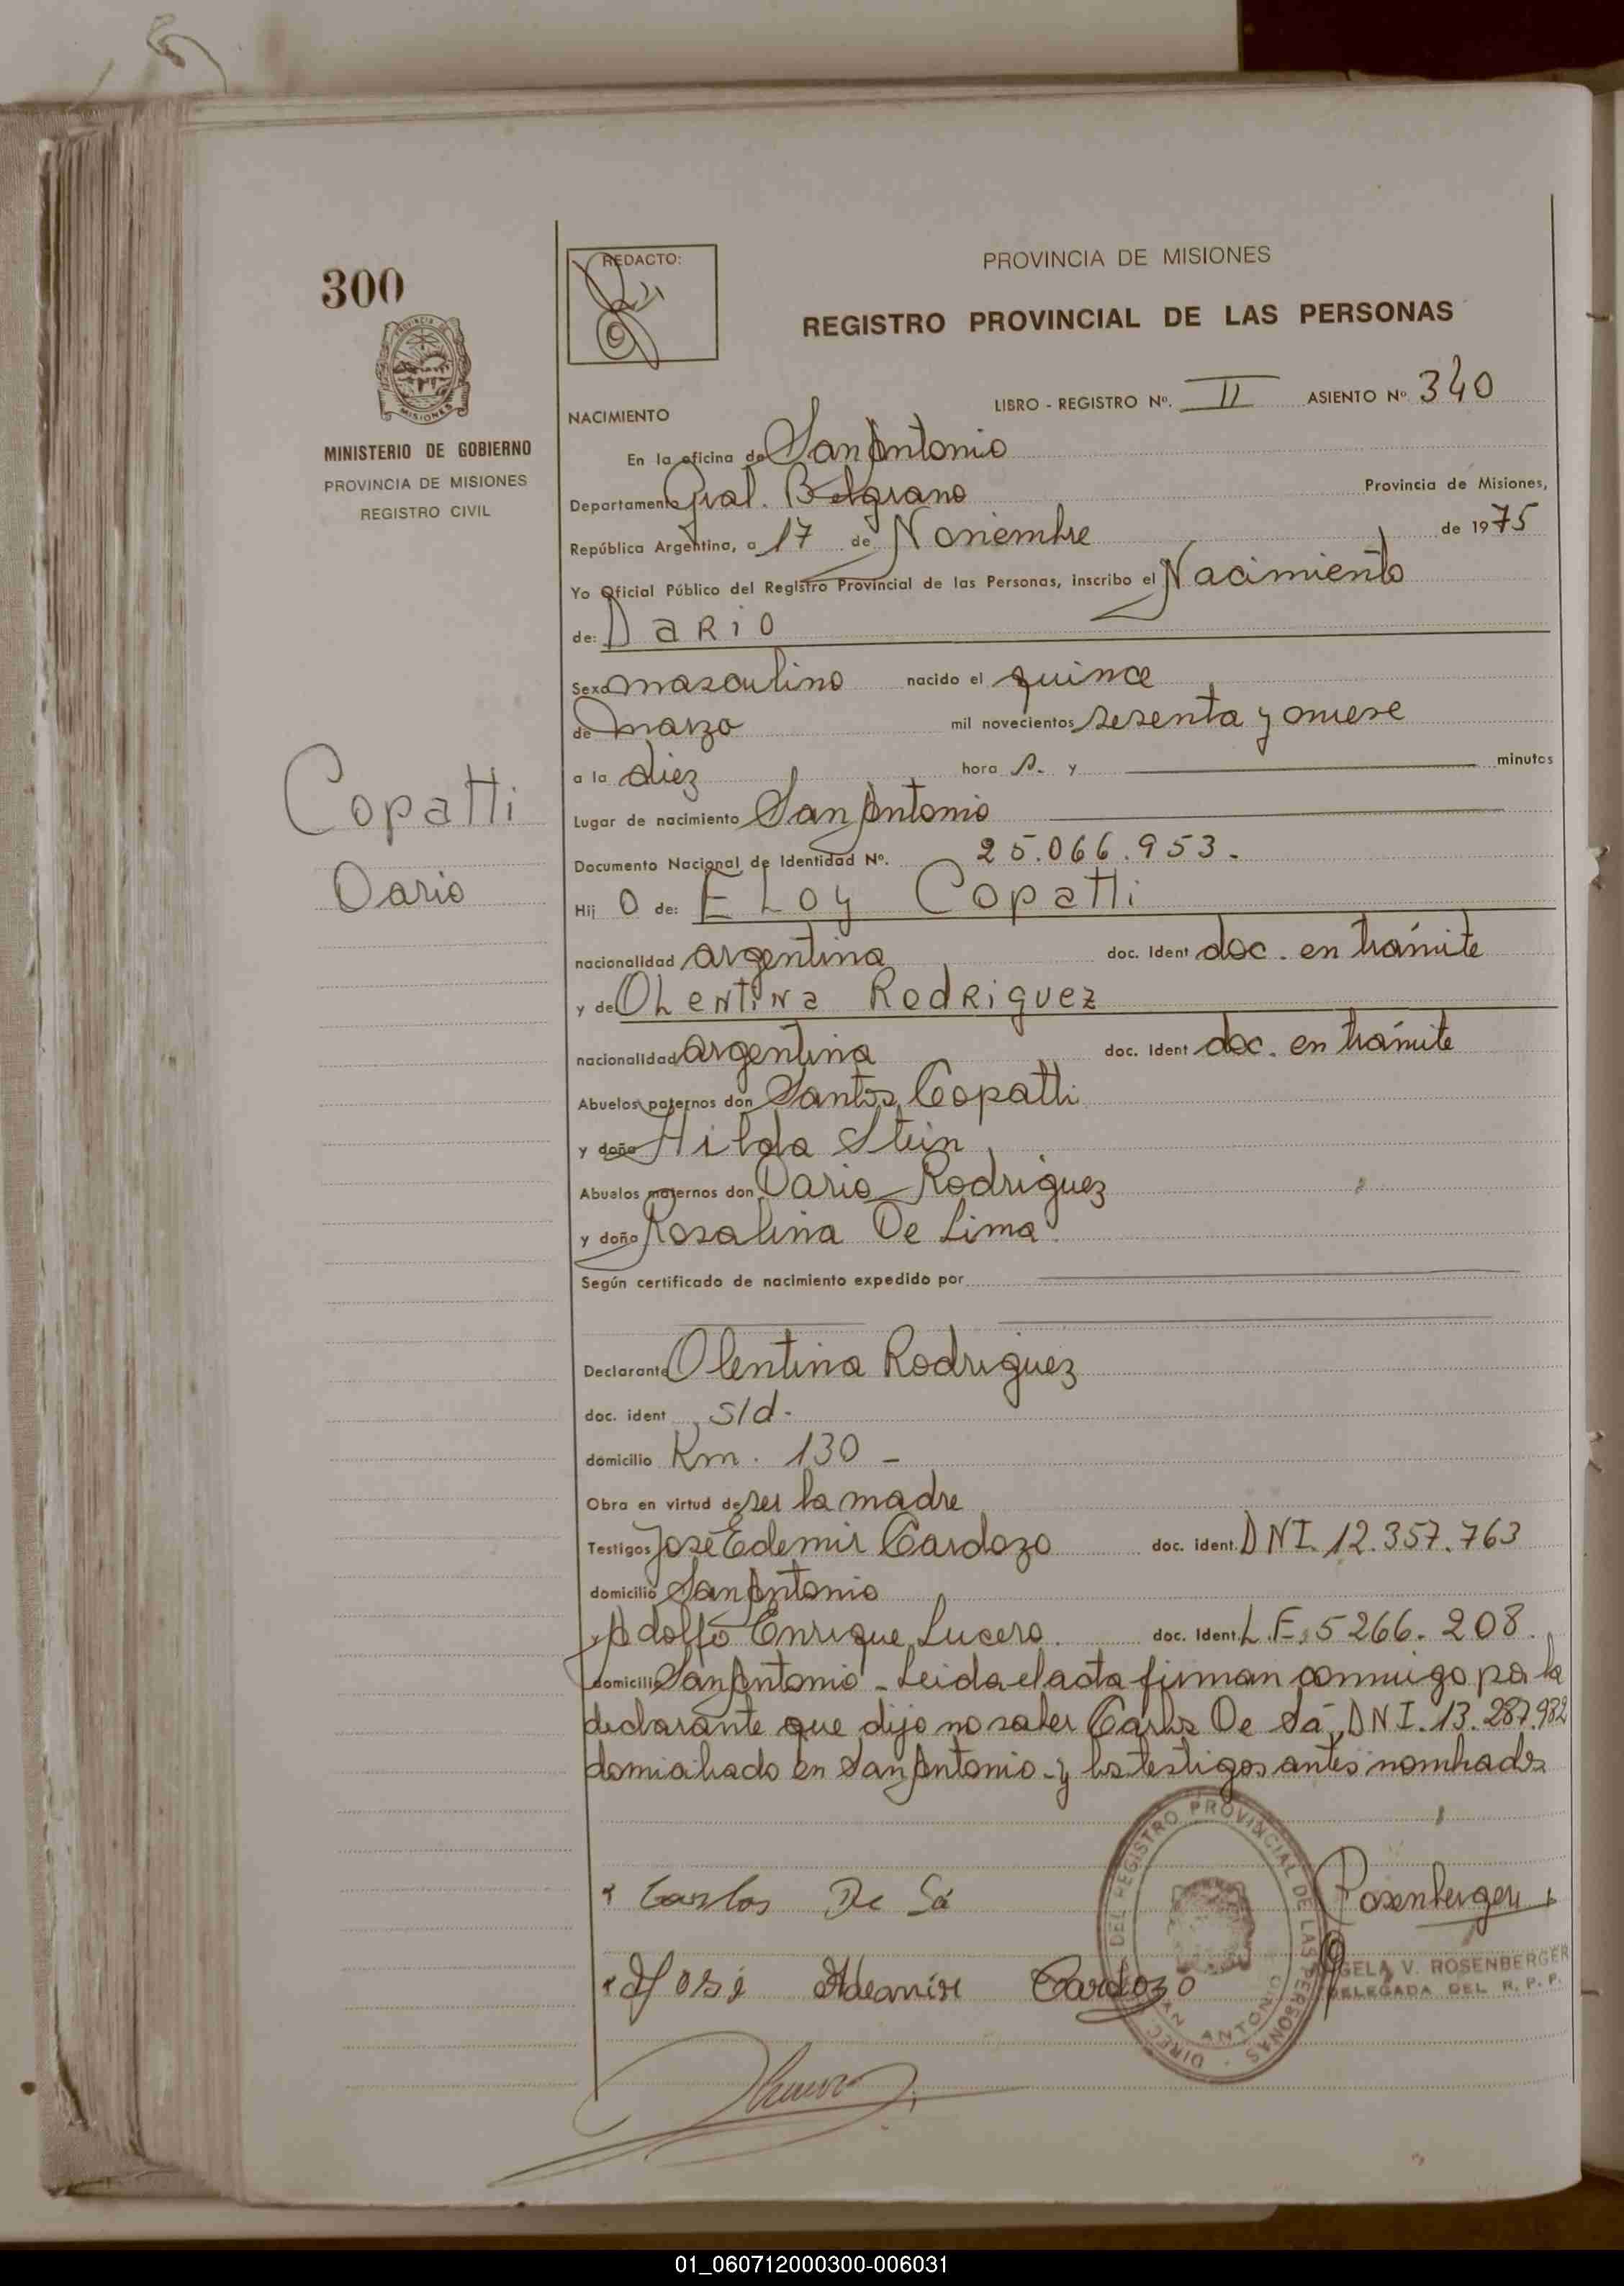 300
REDACTO:
PROVINCIA DE MISIONES
REGISTRO PROVINCIAL DE LAS PERSONAS
PROVINCIA DE
MISIONES
MINISTERIO DE GOBIERNO
PROVINCIA DE MISIONES
REGISTRO CIVIL
NACIMIENTO
LIBRO - REGISTRO Nº. II ASIENTO Nº 340
En la oficina de San Antonio
Departamento Gral. Belgrano Provincia de Misiones,
República Argentina, a 17 de Noviembre de 1975
Yo Oficial Público del Registro Provincial de las Personas, inscribo el Nacimiento
de: Dario
Sexo masculino nacido el quince
de marzo mil novecientos sesenta y nueve
a la diez hora s. y minutos
Lugar de nacimiento San Antonio
Documento Nacional de Identidad Nº. 25.066.953.-
Copatti
Dario
Hij o de: Eloy Copatti
nacionalidad argentina doc. Ident doc. en trámite
y de Olentina Rodriguez
nacionalidad argentina doc. Ident doc. en trámite
Abuelos paternos don Santos Copatti
y doña Hilda Stein
Abuelos maternos don Dario Rodriguez
y doña Rosalina De Lima
Según certificado de nacimiento expedido por
Declarante Olentina Rodriguez
doc. ident s/d.
domicilio Km. 130 -
Obra en virtud de ser la madre
Testigos José Edemir Cardozo doc. ident. DNI. 12.357.763
domicilio San Antonio
Adolfo Enrique Lucero doc. Ident. L.E. 5266.208.
domicilio San Antonio - Leida el acta firman conmigo por la
declarante que dijo no saber Carlos De Sá, DNI. 13.287.982
domiciliado en San Antonio - y los testigos antes nombrados
Carlos De Sá
Rosenberger
José Ademir Cardozo
DIREC. DEL REGISTRO PROVINCIAL DE LAS PERSONAS
SAN ANTONIO
GELA V. ROSENBERGER
DELEGADA DEL R. P. P.
01_060712000300-006031